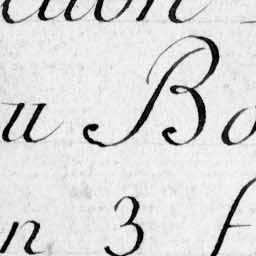 ction
u Bo
n 3 f